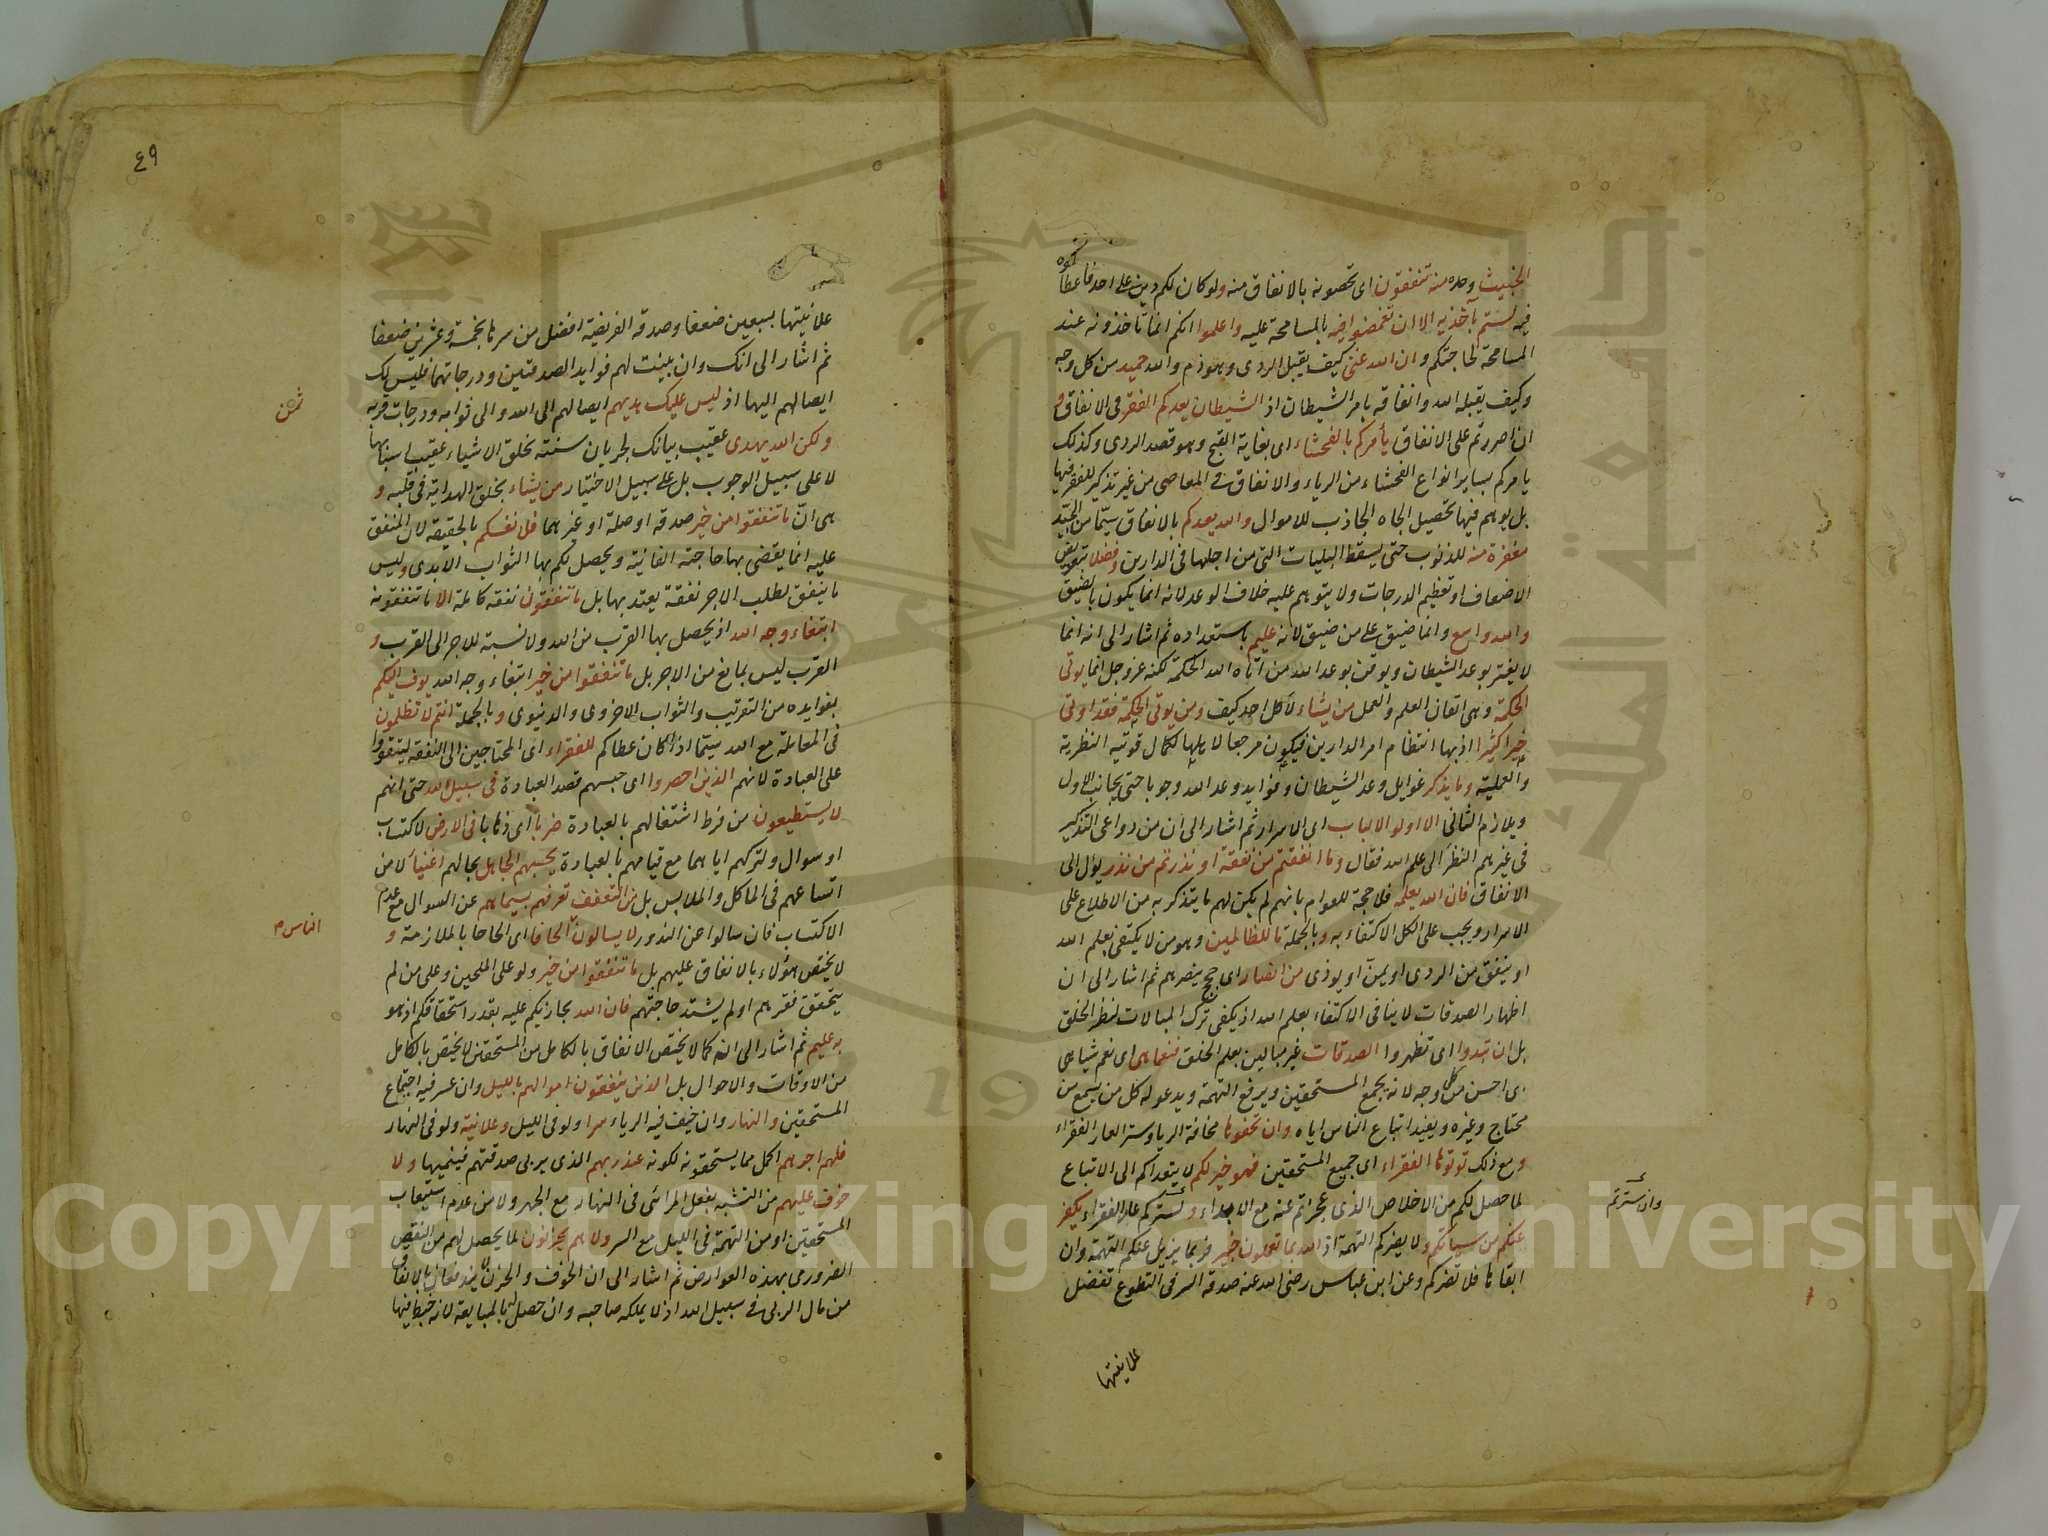 الخبيث وحده منه تنفقون اى تخصونه بالانفاق منه ولو كان لكم دين على احد فاعطاكموه
فيه لستم بآخذيه الا ان تغمضوا فيه بالمسامحة عليه واعلموا انكم انما تاخذونه عند
المسامحة لحاجتكم وان الله غنى كيف يقبل الردى وهو ذم والله حميد من كل وجه
وكيف يقبله الله وانفاقه بامر الشيطان اذ الشيطان يعدكم الفقر فى الانفاق و
ان اصررتم على الانفاق يأمركم بالفحشاء اى بغاية القبح وهو قصد الردى وكذلك
يامركم بساير انواع الفحشاء من الرياء والانفاق فى المعاصى من غير تذكير للفقر فيها
بل يوهم فيها تحصيل الجاه الجاذب للاموال والله يعدكم بالانفاق سيّما من الجيّد
مغفرة منه للذنوب حتى يسقط البليات التى من اجلها فى الدارين وفضلا بتعويض
الاضعاف او تعظيم الدرجات ولا يتوهم عليه خلاف الوعد لانه انما يكون بالضيق
والله واسع وانما ضيق على من ضيق لانه عليم باستعداده ثم اشار الى انه انما
لا يغتر بوعد الشيطان ويوقن بوعد الله من آتاه الله الحكمة لكنه عز وجل انما يوتى
الحكمة وهى اتقان العلم والعمل من يشاء لا كل احد كيف ومن يوتى الحكمة فقد اوتى
خيرا كثيرا اذ بها انتظام امر الدارين فيكون مرجعا لاهلها لكمال قوتيه النظرية
والعملية وما يذكر غوايل وعد الشيطان وفوايد وعد الله وجوبا حتى يجانب الاول
ويلازم الثانى الا اولو الالباب اى الاسرار ثم اشار الى ان من دواعى التذكير
فى غيرهم النظر الى علم الله فقال وما انفقتم من نفقة او نذرتم من نذر يول الى
الانفاق فان الله يعلمه فلا حجة للعوام بانهم لم يكن لهم ما يتذكر به من الاطلاع على
الاسرار ويجب على الكل الاكتفاء به وبالجملة ما للظالمين وهو من لا يكتفى بعلم الله
او ينفق من الردى او يمنّ او يوذى من انصار اى حجج ينصرهم ثم اشار الى ان
اظهار الصدقات لا ينافى الاكتفاء بعلم الله اذ يكفى ترك المبالات لنظر الخلق
بل ان تبدوا اى تظهروا الصدقات غير مبالين بعلم الخلق فنعما هى اى نعم شيا هى
اى احسن من كل وجه لانه يجمع المستحقين ويرفع التهمة ويدعو له كل من يسمع من
محتاج وغيره ويفيد اتباع الناس اياه وان تخفوها مخافة الريا وستر العار الفقراء
ومع ذلك توتوها الفقراء اى جميع المستحقين فهو خير لكم لا يتعداكم الى الاتباع
لما حصل لكم من الاخلاص الذى عجزتم عنه مع الابداء ولستركم عار الفقراء يكفر
عنكم من سيأتكم ولا يضركم التهمة اذ الله بما تعملون خبير فربما يزيل عنكم التهمة وان
ابقاها فلا تضركم وعن ابن عباس رضى الله عنه صدقة السر فى التطوع تفضل
علانيتها
وان سترتم
٤٩
علانيتها بسبعين ضعفا وصدقة الفريضة افضل من سرها بخمسة وعشرين ضعفا
ثم اشار الى انك وان بينت لهم فوايد الصدقتين ودرجاتهما فليس لك
ايصالهم اليها اذ ليس عليك هديهم ايصالهم الى الله والى ثوابه ودرجات قربه
ولكن الله يهدى عقيب بيانك لجريان سنته بخلق الاشياء عقيب اسبابها
لا على سبيل الوجوب بل على سبيل الاختيار من يشاء بخلق الهداية فى قلبه و
هى انّ ما تنفقوا من خير صدقة او صلة او غيرهما فلانفسكم بالحقيقة لان المنفق
عليه انما يقضى بها حاجته الفانية ويحصل لكم بها الثواب الابدى وليس
ما ينفق لطلب الاجر نفقة يعتد بها بل ما تنفقون نفقة كاملة الا ما تنفقونه
ابتغاء وجه الله اذ يحصل بها القرب من الله ولا نسبة للاجر الى القرب و
القرب ليس بمانع من الاجر بل ما تنفقوا من خير ابتغاء وجه الله يوف اليكم
بفوايده من التقريب والثواب الاخروى والدنيوى وبالجملة انتم لا تظلمون
فى المعاملة مع الله سيّما اذا كان عطاكم للفقراء اى المحتاجين الى النفقة ليتقووا
على العبادة لانهم الذين احصروا اى حبسهم قصد العبادة فى سبيل الله حتى انهم
لا يستطيعون من فرط اشتغالهم بالعبادة ضربا اى ذهابا فى الارض لاكتساب
او سوال ولتركهم اياهما مع قيامهم بالعبادة يحسبهم الجاهل بحالهم اغنياء لا من
اتساعهم فى الماكل والملابس بل من التعفف تعرفهم بسيماهم عن السوال مع عدم
الاكتساب فان سالوا عن الندور لا يسالون الحافا اى الحاحا بالملازمة و
لا يختص هؤلاء بالانفاق عليهم بل ما تنفقوا من خير ولو على الملحين وعلى من لم
يتحقق فقرهم او لم يشتد حاجتهم فان الله يجازيكم عليه بقدر استحقاقكم اذ هو
به عليم ثم اشار الى انه كما لا يختص الانفاق بالكامل من المستحقين لا يختص بالكامل
من الاوقات والاحوال بل الذين ينفقون اموالهم بالليل وان عسر فيه اجتماع
المستحقين والنهار وان خيف فيه الرياء سرا ولو فى الليل وعلانية ولو فى النهار
فلهم اجرهم اكمل مما يستحقونه لكونه عند ربهم الذى يربى صدقتهم فينميها ولا
خوف عليهم من التشبه بفعل المرائى فى النهار مع الجهر ولا من عدم استيعاب
المستحقين او من التهمة فى الليل مع السر ولا هم يحزنون لما يحصل لهم من النقيص
الضرورى بهذه العوارض ثم اشار الى ان الخوف والحزن بالانفاق
من مال الربى فى سبيل الله اذ لا يملكه صاحبه وان حصل له بالمبايعة لانه خبط فيها
ثمن
الناس م
Copyright © King Saud University
جامعة الملك
19